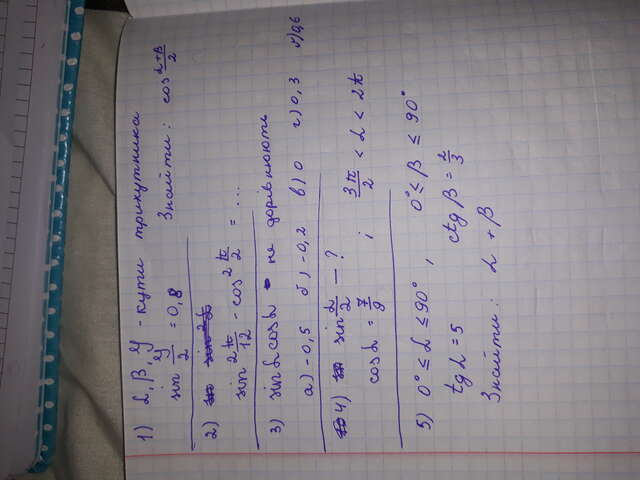 1) α, β, γ - кути трикутника
sin γ/2 = 0,8 Знайти: cos (α+β)/2
2)
sin² π/12 - cos² π/2 = ...
3) sin α cos α - не дорівнюють
а) -0,5 б) -0,2 в) 0 г) 0,3 0,6
4) sin α/2 - ?
cos α = 7/9 і 3π/2 < α < 2π
5) 0° ≤ α ≤ 90°, 0° ≤ β ≤ 90°
tg α = 5 ctg β = 2/3
Знайти: α + β